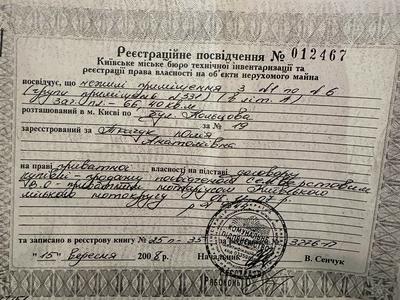 Реєстраційне посвідчення № 012467
Київське міське бюро технічної інвентаризації та
реєстрації права власності на об'єкти нерухомого майна
посвідчує, що нежилі приміщення з №1 по №6
(групи приміщень №331) (в літ. А)
заг. пл. - 66,40 кв.м
розташований в м. Києві по бул. Кольцова
за № 19
зареєстрований за Ткачук Юлія
Анатоліївна
на праві приватної власності на підставі договору
купівлі-продажу посвідченого
В.О. - приватним нотаріусом Київського
міського нотокругу
та записано в реєстрову книгу № 25п-35
" 15 " вересня 2008 р.
В. Сенчук